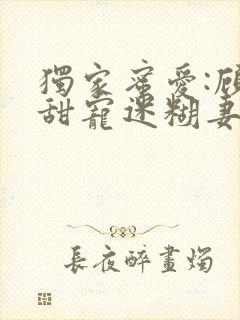 獨家蜜愛:顧
甜寵迷糊妻
長夜醉畫燭